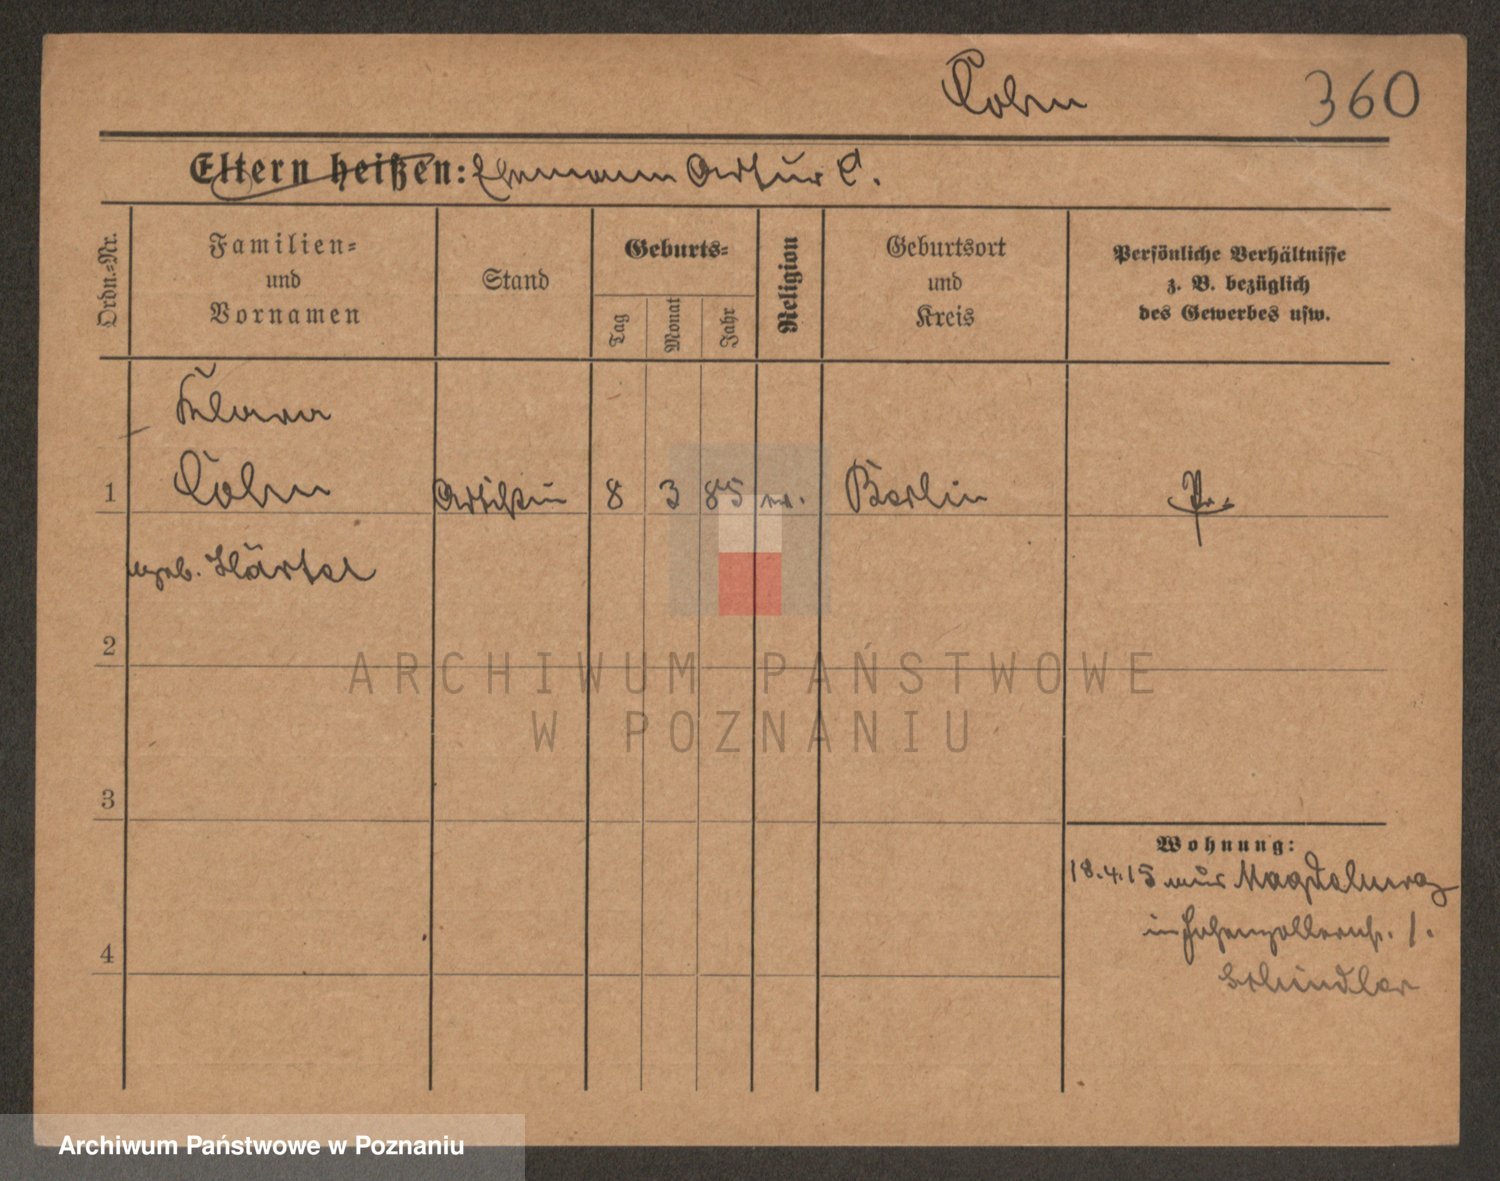 Cohn 360
Eltern heißen: Ehemann Artur C.
Ordn.=Nr.
Familien=
und
Vornamen
Stand
Geburts=
Tag
Monat
Jahr
Religion
Geburtsort
und
Kreis
Persönliche Verhältnisse
z. B. bezüglich
des Gewerbes usw.
Klara
1 Cohn Artistin 8 3 85 Berlin Pr.
geb. Härtel
2
3
4
Wohnung:
18.4.15 aus Magdeburg
in Hohenzollernstr. 1.
Schindler
ARCHIWUM PAŃSTWOWE
W POZNANIU
Archiwum Państwowe w Poznaniu